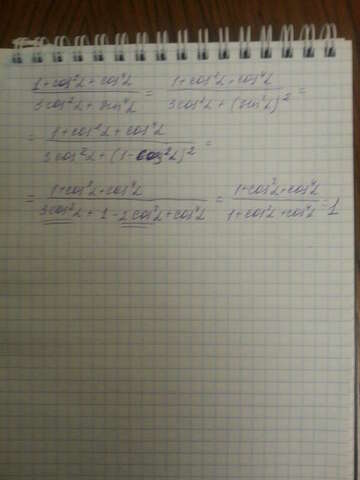 (1+cos²α+cos⁴α)/(3cos²α+sin⁴α) = (1+cos²α+cos⁴α)/(3cos²α+(sin²α)²) =
= (1+cos²α+cos⁴α)/(3cos²α+(1-cos²α)²) =
= (1+cos²α+cos⁴α)/(3cos²α+1-2cos²α+cos⁴α) = (1+cos²α+cos⁴α)/(1+cos²α+cos⁴α) = 1